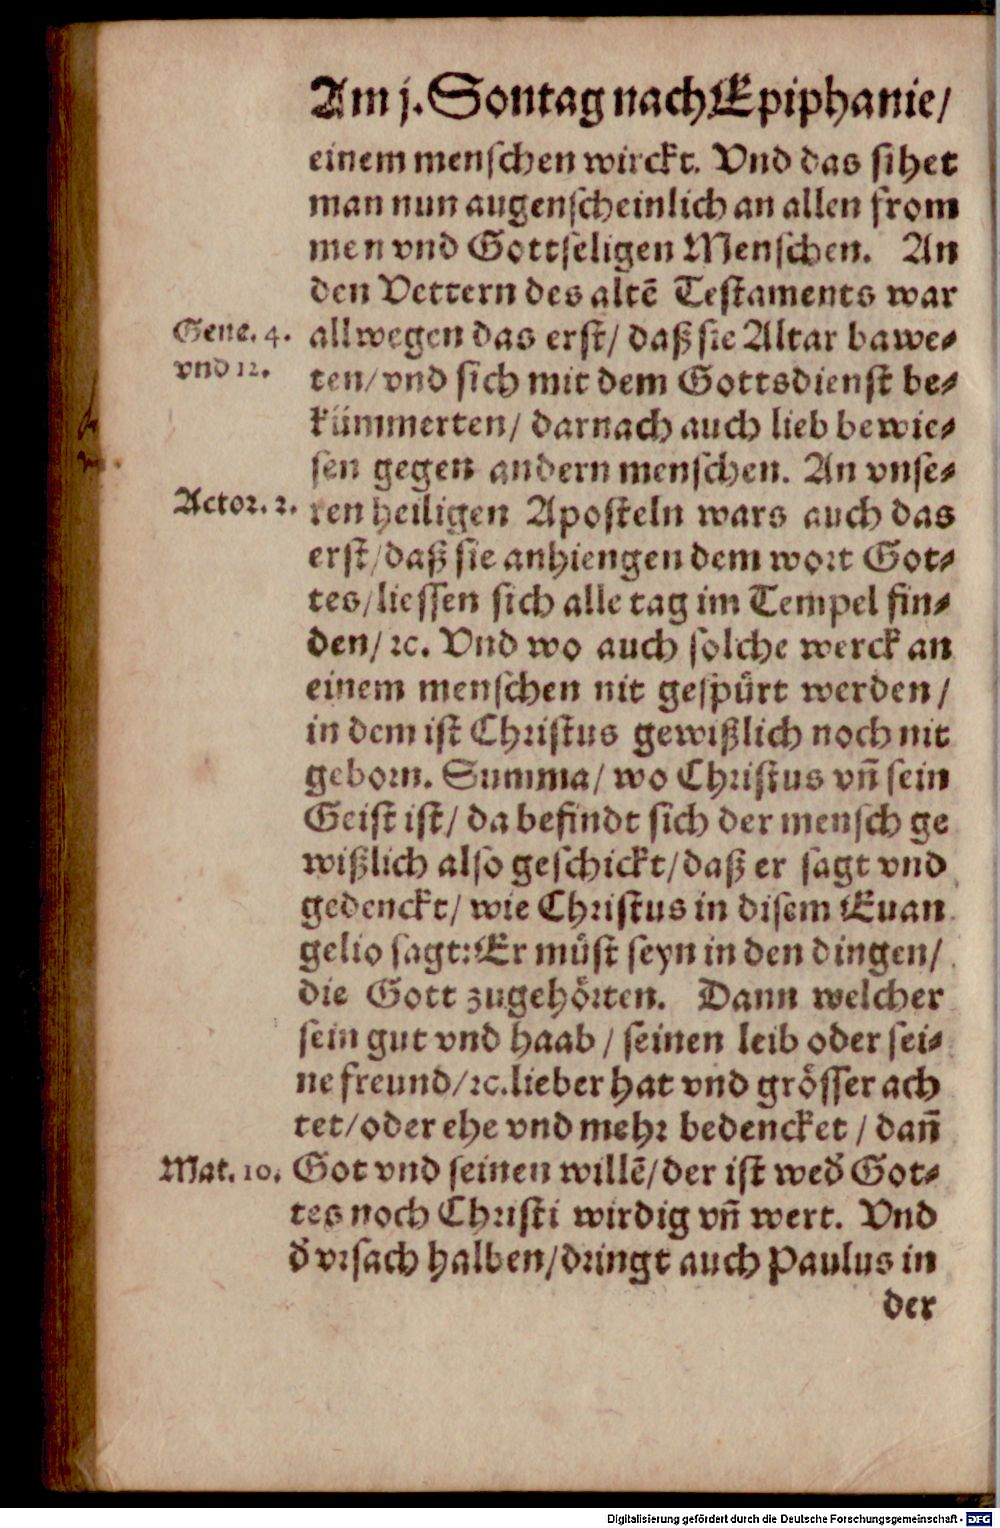 Am j. Sontag nach Epiphanie/
einem menschen wirckt. Vnd das sihet
man nun augenscheinlich an allen from
men vnd Gottseligen Menschen. An
den Vettern des altē Testaments war
Gene. 4. allwegen das erst/ daß sie Altar bawe⸗
vnd 12. ten/ vnd sich mit dem Gottsdienst be⸗
kümmerten/ darnach auch lieb bewie⸗
sen gegen andern menschen. An vnse⸗
Actor. 2. ren heiligen Aposteln wars auch das
erst/ daß sie anhiengen dem wort Got⸗
tes/ liessen sich alle tag im Tempel fin⸗
den/ ꝛc. Vnd wo auch solche werck an
einem menschen nit gespürt werden/
in dem ist Christus gewißlich noch nit
geborn. Summa/ wo Christus vñ sein
Geist ist/ da befindt sich der mensch ge
wißlich also geschickt/ daß er sagt vnd
gedenckt/ wie Christus in disem Euan
gelio sagt: Er müst seyn in den dingen/
die Gott zugehörten. Dann welcher
sein gut vnd haab/ seinen leib oder sei⸗
ne freund/ ꝛc. lieber hat vnd grösser ach
tet/ oder ehe vnd mehr bedencket/ dañ
Mat. 10. Got vnd seinen willē/ der ist wed̄ Got⸗
tes noch Christi wirdig vñ wert. Vnd
d̄ vrsach halben/ dringt auch Paulus in
der
Digitalisierung gefördert durch die Deutsche Forschungsgemeinschaft - DFG